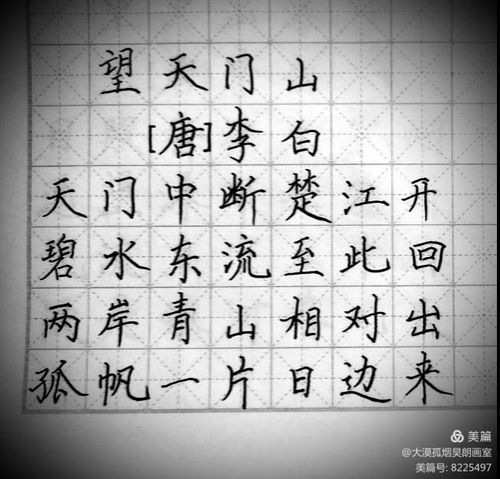 望天门山
[唐]李白
天门中断楚江开
碧水东流至此回
两岸青山相对出
孤帆一片日边来
美篇
@大漠孤烟昊朗画室
美篇号: 8225497